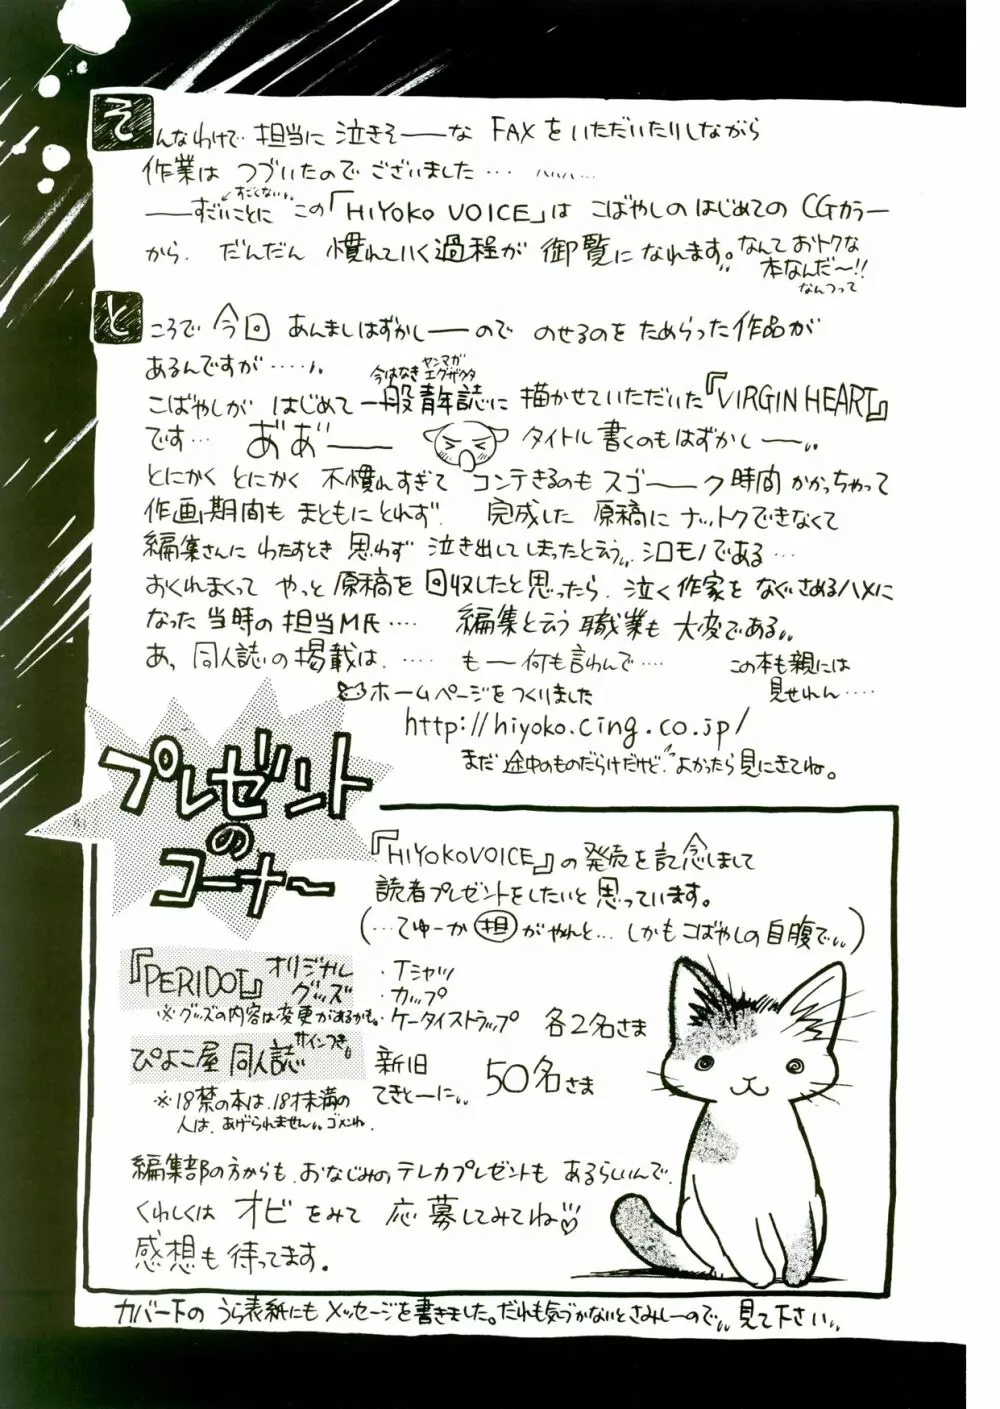 そんなわけで 担当に 泣きそーーな FAX を いただいたりしながら
作業は つづいたので ございました… ……
すごくない
――すごいことに この「HIYOKO VOICE」は こばやしの はじめての CGカラー
から、だんだん 慣れていく過程が 御覧になれます。なんて おトクな
本なんだ〜!!
なんつって
ところで 今回 あんましはずかしーーので のせるのを ためらった作品が
あるんですが……
今はなき ヤンマガ エグザクタ
こばやしが はじめて 一般青年誌に 描かせていただいた『VIRGIN HEART』
です… あ゛あ゛―― タイトル 書くのもはずかしーー
とにかく とにかく 不慣れすぎて コンテきるのも スゴーーク 時間 かかっちゃって
作画期間も まともに とれず 完成した 原稿に ナットクできなくて
編集さんに わたすとき 思わず 泣き出して しまったとゆう シロモノである…
おくれまくって やっと 原稿を 回収したと思ったら、泣く作家を なぐさめるハメに
なった 当時の 担当M氏…. 編集と云う 職業も 大変である
あ、同人誌の掲載は、…… もー何も言わんで…. この本も親には
見せれん….
ホームページをつくりました
http://hiyoko.cing.co.jp/
まだ 途中のものだらけだけど よかったら 見にきてね。
プレゼント
の
コーナー
『HIYOKOVOICE』の 発売を 記念しまして
読者プレゼントをしたいと 思っています。
(…てゆーか 担 がやれと… しかもこばやしの自腹で)
『PERIDOT』オリジナル グッズ
・Tシャツ
・カップ
・ケータイストラップ 各2名さま
※グッズの内容は変更があるかも。
ぴよこ屋 同人誌 サインつき 新旧 てきとーに 50名さま
※18禁の本は、18才未満の
人は、あげられません ゴメンね.
編集部の方からも、おなじみの テレカプレゼントも あるらしいんで、
くわしくは オビ をみて 応募してみてね♡
感想も 待ってます。
カバー下の うら表紙にも メッセージを書きました。だれも気づかないとさみしーので 見て下さい